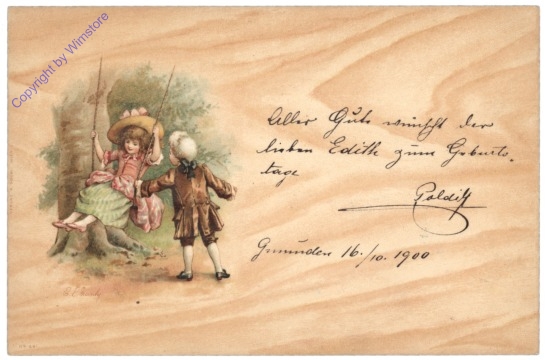 Copyright by Wimstore
Alles Gute wünscht der
lieben Edith zum Geburts-
tage
Poldi
Gmunden 16./10. 1900